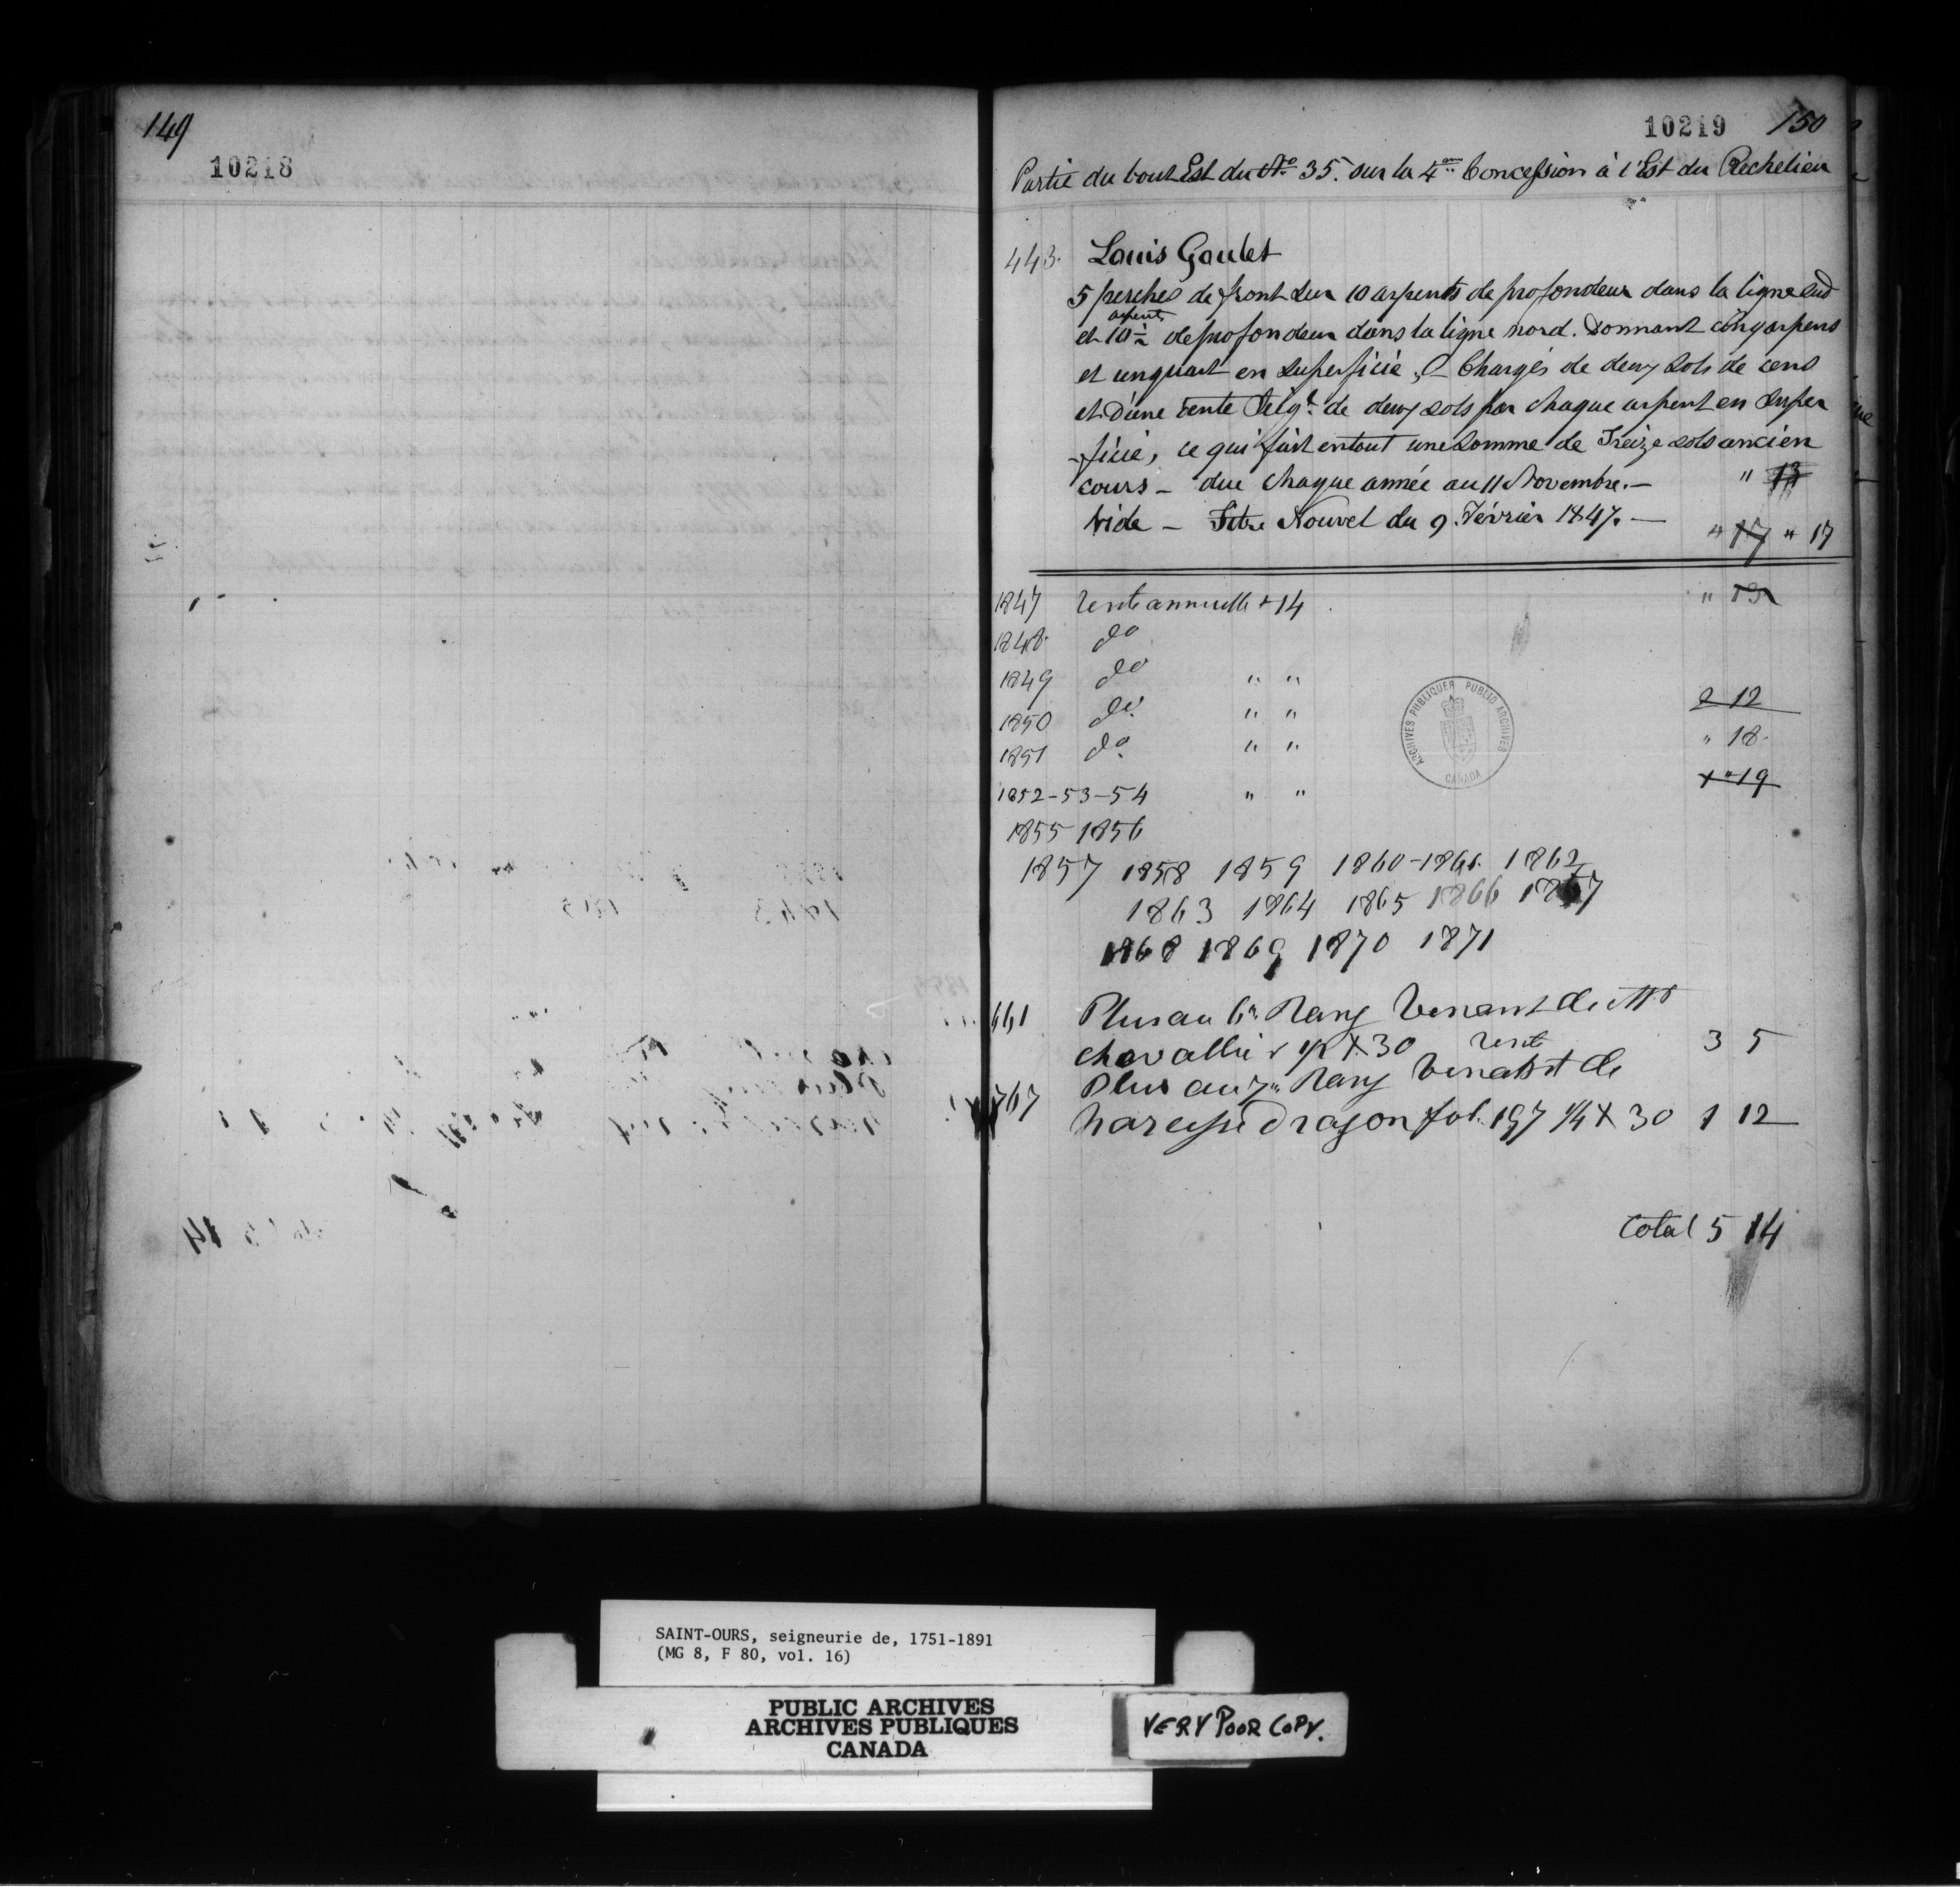 149
10218
10219 150
Partie du bout Est du No 35. sur la 4eme Concession à l'Est du Rechelieu
443. Louis Goulet
5 perches de front sur 10 arpents de profondeur dans la ligne sud
et 10 1/2 arpents de profondeur dans la ligne nord. Donnant cinq arpens
et un quart en superficie, - Chargés de deux sols de cens
et d'une rente Seigle de deux sols par chaque arpent en super
-ficie, ce qui fait en tout une somme de Treize sols ancien
cours - due chaque année au 11 Novembre. - " 13
Vide - Titre Nouvel du 9. Février 1847. - " 17 " 17
1847 rente annuelle + 14 " 13
1848 do
1849 do " "
1850 do " " 2 12
1851 do " " " 18
1852-53-54 " " 1 " 19
1855 1856
1857 1858 1859 1860-1861. 1862
1863 1864 1865 1866 1867
1868 1869 1870 1871
661 Plus au 6me Rang Venant de Mr
chevallier 1/2 X 30 rente 3 5
767 Plus au 7me Rang Venant de
narcisse Dragon fol. 197 1/4 X 30 1 12
total 5 14
ARCHIVES PUBLIQUES PUBLIC ARCHIVES
CANADA
SAINT-OURS, seigneurie de, 1751-1891
(MG 8, F 80, vol. 16)
PUBLIC ARCHIVES
ARCHIVES PUBLIQUES
CANADA
VERY POOR COPY.